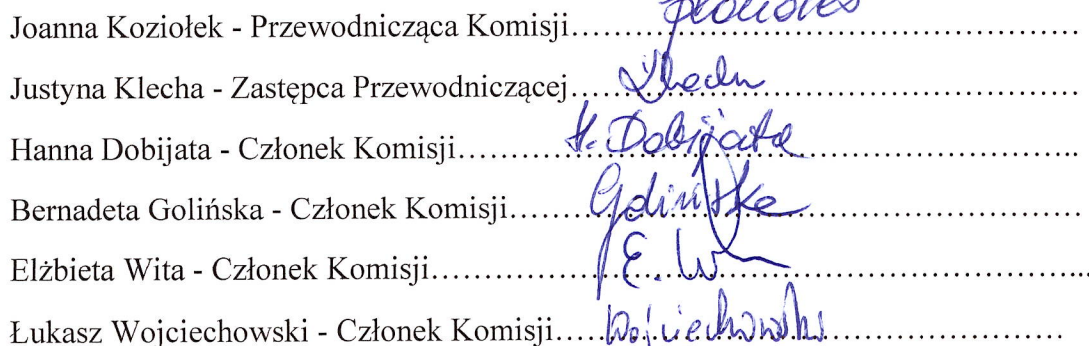 Joanna Koziołek - Przewodnicząca Komisji......................................................
Justyna Klecha - Zastępca Przewodniczącej......................................................
Hanna Dobijata - Członek Komisji..........H. Dobijata......................................
Bernadeta Golińska - Członek Komisji........Golińska......................................
Elżbieta Wita - Członek Komisji..................E. W......................................
Łukasz Wojciechowski - Członek Komisji.....Wojciechowski..............................